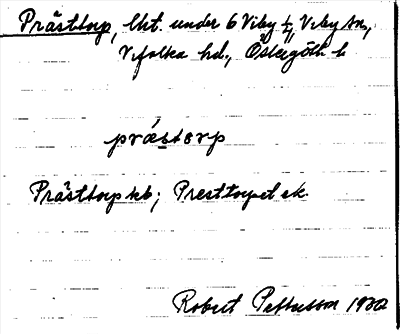 Prästtorp, lht. under 6 Viby 1/4, Viby sn,
Vifolka hd., Östergötl. l.
præstorp
Prästtorp kb; Presttorpet sk.
Robert Pettersson 1932